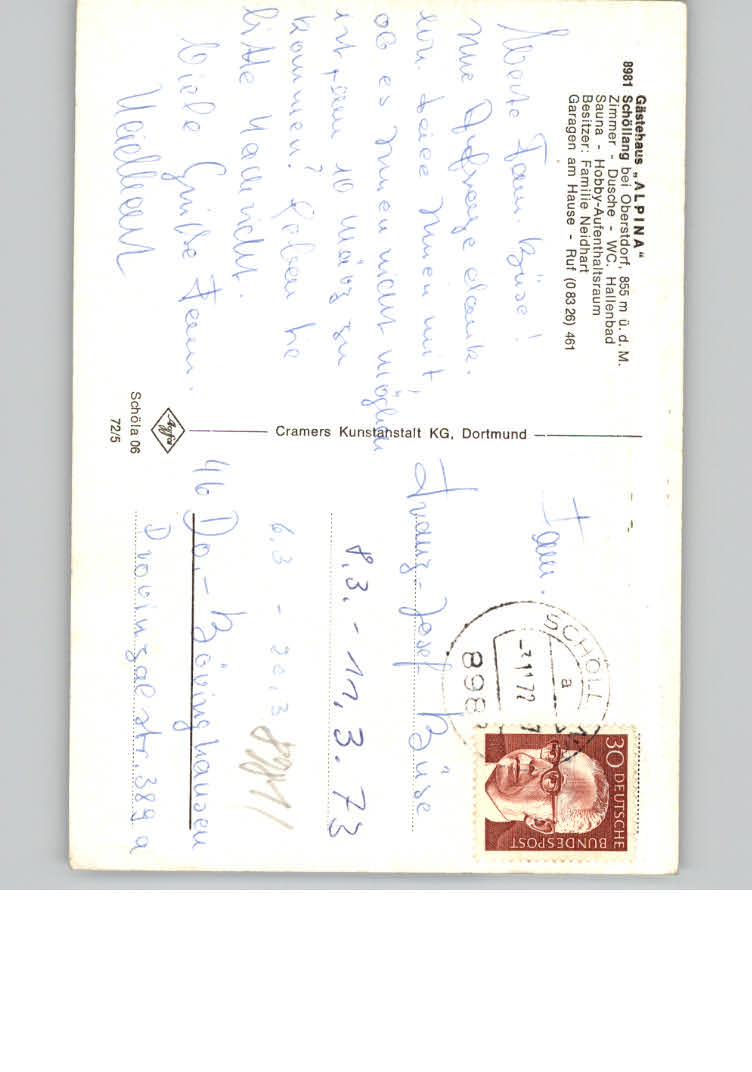 Gästehaus „ALPINA"
8981 Schöllang bei Oberstdorf, 855 m ü. d. M.
Zimmer - Dusche - WC, Hallenbad
Sauna - Hobby-Aufenthaltsraum
Besitzer: Familie Neidhart
Garagen am Hause - Ruf (0 83 26) 461
Werte Fam. Büse!
Ihre Anfrage dank.
teile Ihnen mit
ob es Ihnen nicht möglich
ist, am 10 März zu
kommen? Geben Sie
bitte Nachricht.
Viele Grüße Fam.
Neidhart
Cramers Kunstanstalt KG, Dortmund
Agfa
Schöla 06
72/5
SCHÖLL
a
-3.11.72
898
30 DEUTSCHE
BUNDESPOST
Fam.
Franz-Josef Büse
8.3. - 11.3.73
6.3 - 20.3
8981
46 Do.-Bövinghausen
Provinzalstr. 389 a